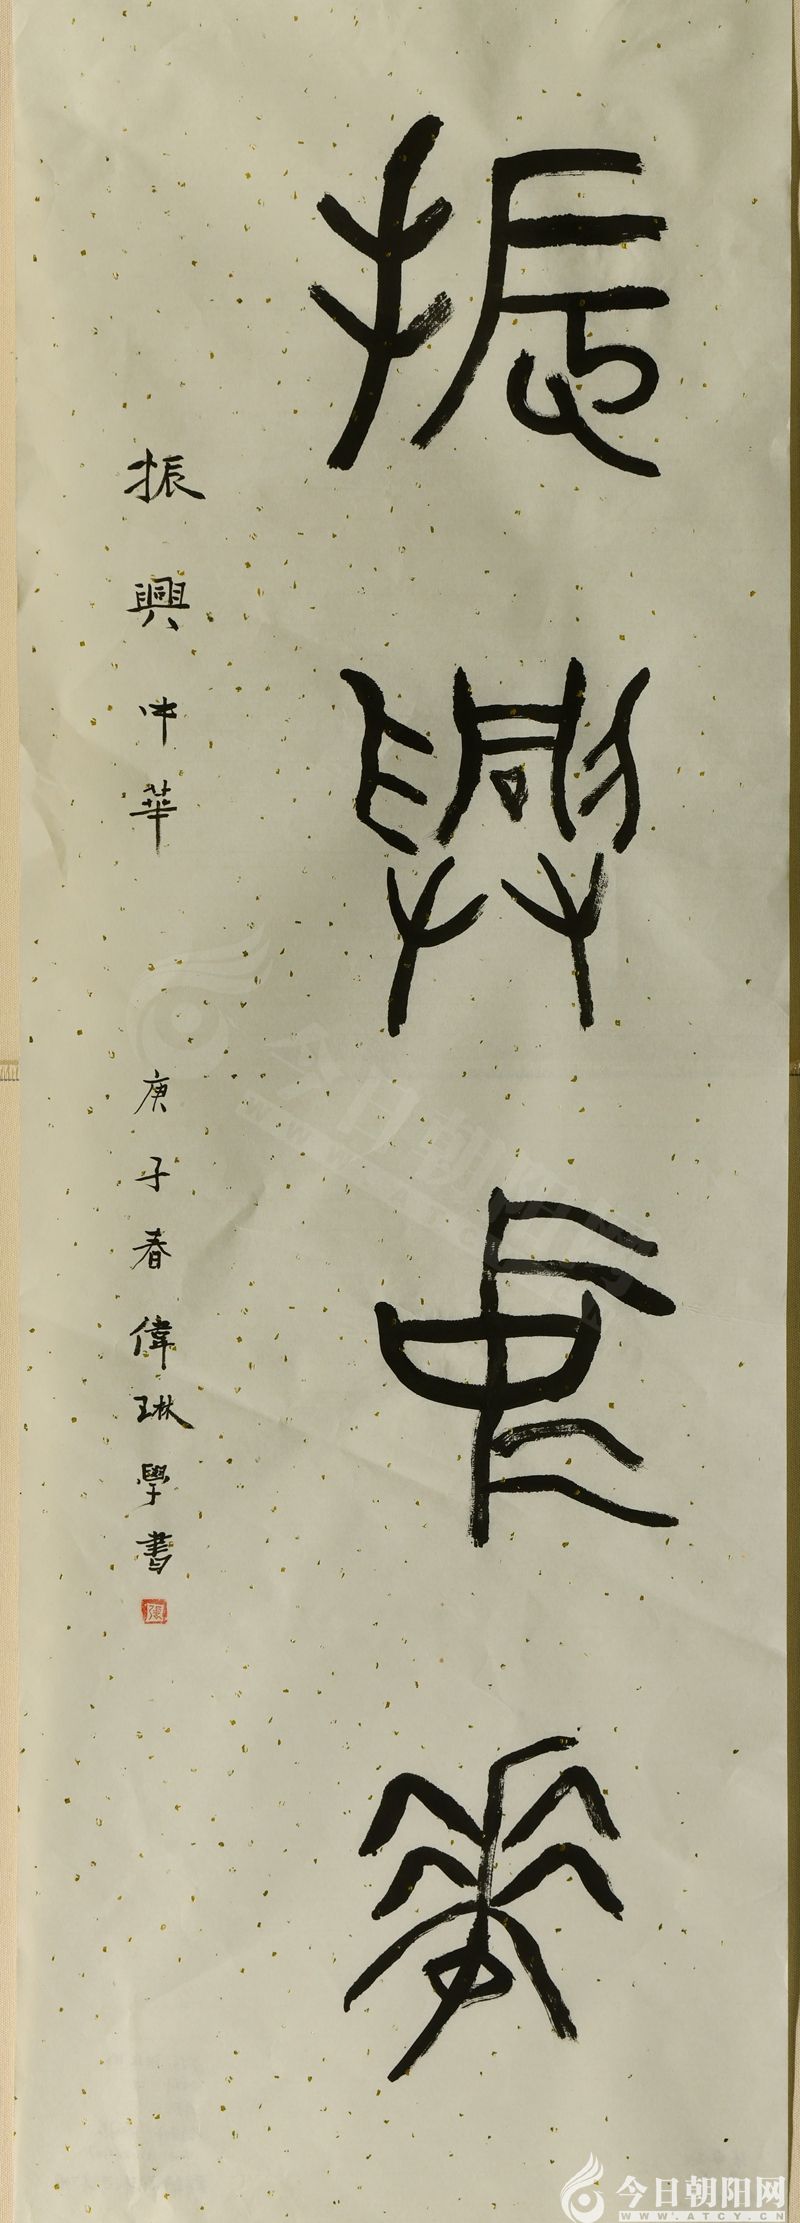 振興中華
振興中華 庚子春偉琳學書
張
今日朝阳网
WWW.ATCY.CN